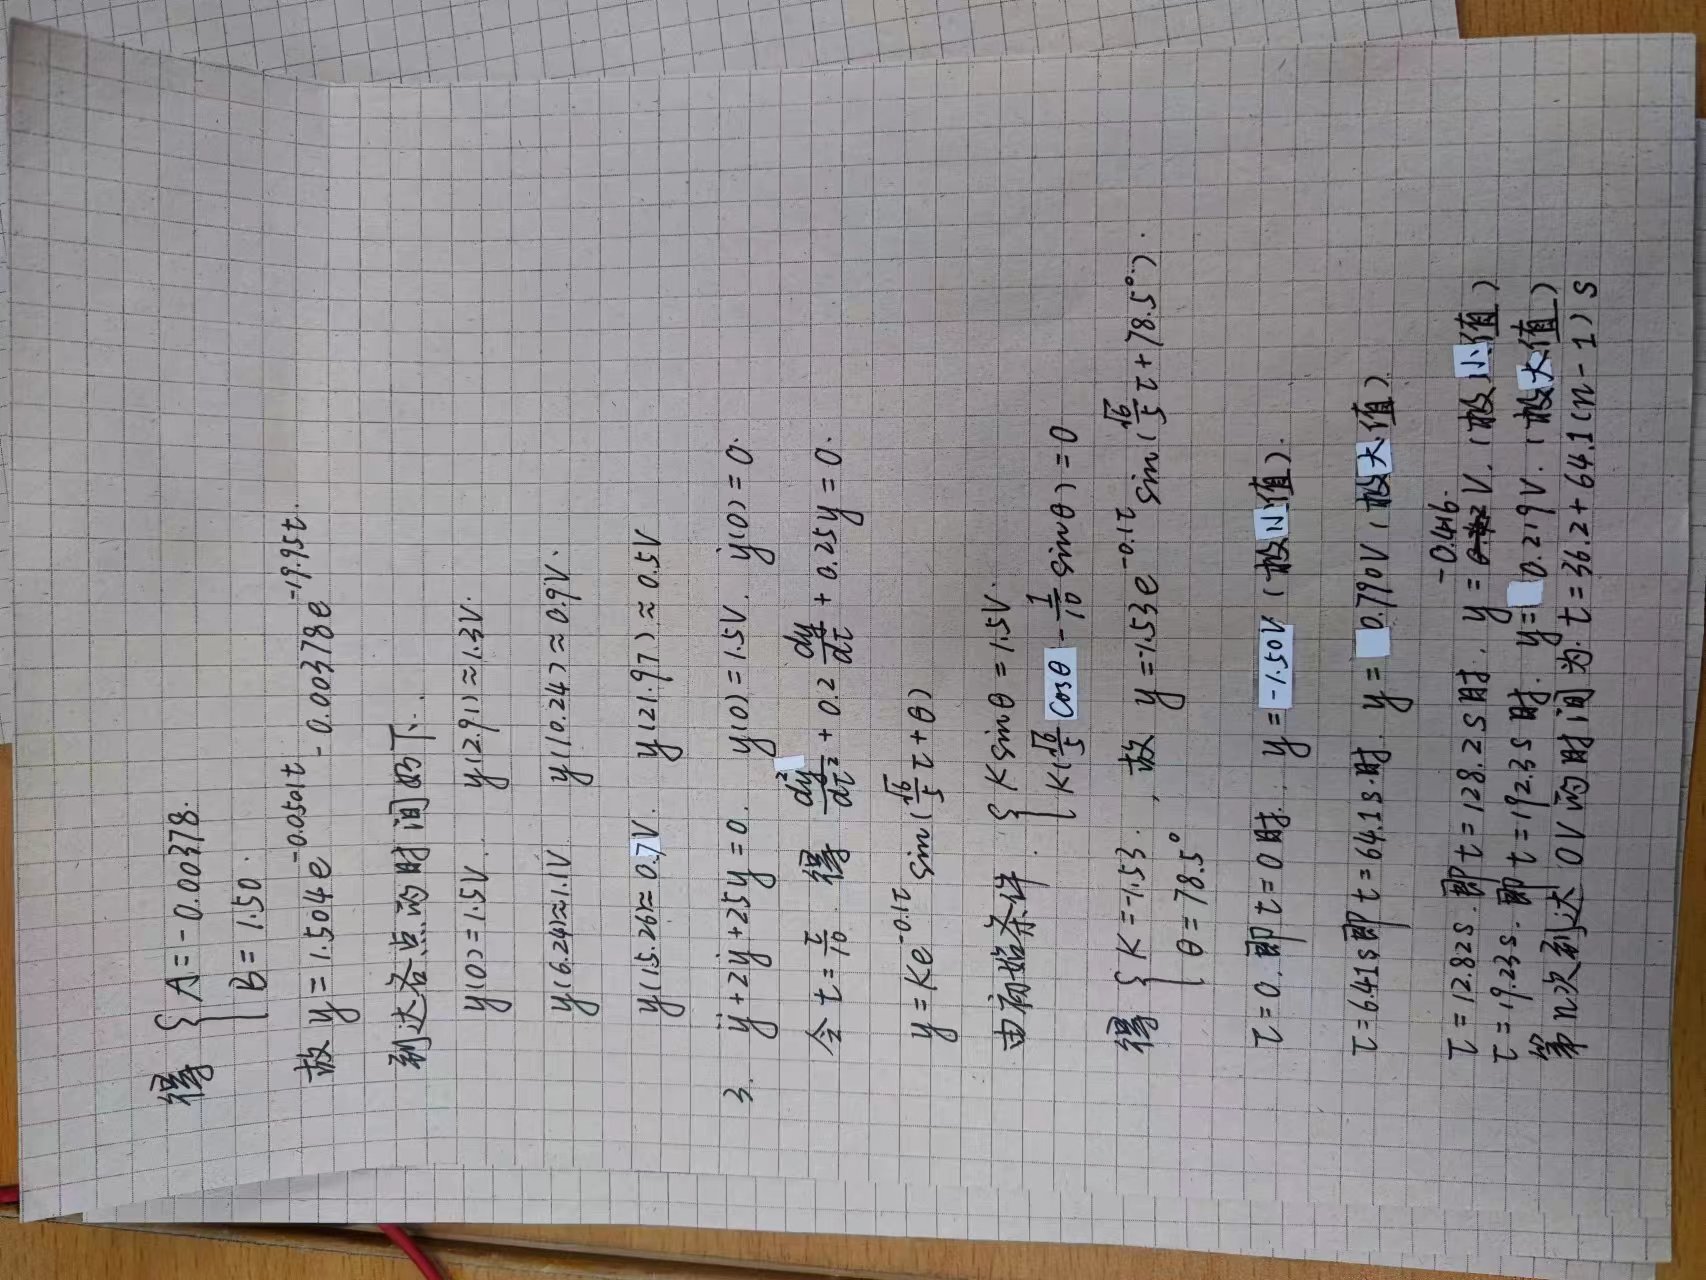 得 { A = -0.00378.
B = 1.50.
故 y = 1.504e^{-0.0501t} - 0.00378e^{-19.95t}.
到达各点的时间如下.
y(0) = 1.5V. y(2.91) ≈ 1.3V.
y(6.24) ≈ 1.1V. y(10.24) ≈ 0.9V.
y(15.26) ≈ 0.7V. y(21.97) ≈ 0.5V
3. ÿ + 2ẏ + 25y = 0. y(0) = 1.5V. ẏ(0) = 0.
令 t = τ/10. 得 d²y/dτ² + 0.2 dy/dτ + 0.25y = 0.
y = Ke^{-0.1τ} sin(√6/5 τ + θ)
由初始条件. { K sinθ = 1.5V.
K(√6/5 cosθ - 1/10 sinθ) = 0
得 { K = -1.53.
θ = 78.5° , 故 y = -1.53e^{-0.1τ} sin(√6/5 τ + 78.5°).
τ = 0. 即 t = 0 时. y = -1.50V (极小值).
τ = 6.41s 即 t = 64.1s 时. y = 0.790V (极大值)
τ = 12.82s. 即 t = 128.2s 时. y = -0.416. V. (极小值)
τ = 19.23s. 即 t = 192.3s 时. y = 0.219V. (极大值)
第n次到达 0V 的时间为 t = 36.2 + 64.1(n-1) s